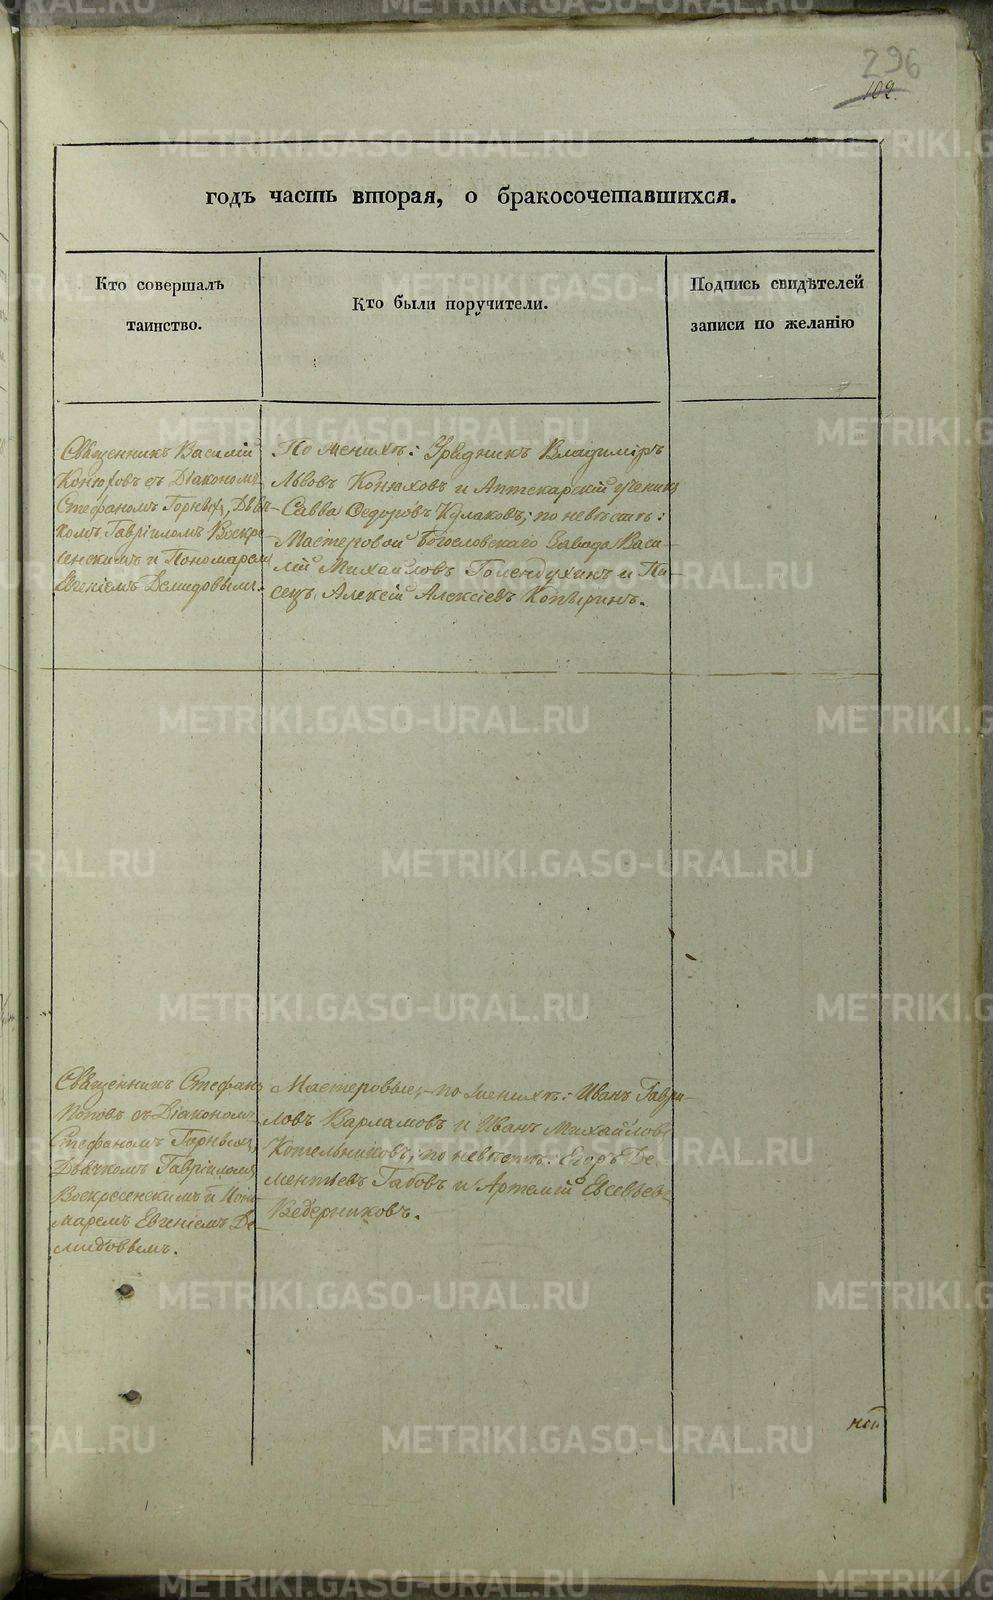 296
102.
годъ часть вторая, о бракосочетавшихся.
Кто совершалъ
таинство.
Кто были поручители.
Подпись свидѣтелей
записи по желанію
Священникъ Василій
Конюховъ съ Діакономъ
Стефаномъ Горныхъ, Дьяч-
комъ Гавріиломъ Воскре-
сенскимъ и Пономаремъ
Евгеніемъ Демидовымъ.
По женихѣ: Урядникъ Владиміръ
Львовъ Конюховъ и Аптекарскій ученикъ
Савва Ѳедоровъ Кулаковъ; по невѣстѣ:
Мастеровой Богословскаго Завода Васи-
лій Михайловъ Голендухинъ и Пи-
сецъ Алексій Алексіевъ Копыринъ.
Священникъ Стефанъ
Поповъ съ Діакономъ
Стефаномъ Горныхъ,
Дьячкомъ Гавріиломъ
Воскресенскимъ и Поно-
маремъ Евгеніемъ Де-
мидовымъ.
Мастеровые, по женихѣ: Иванъ Гаври-
ловъ Варламовъ и Иванъ Михайловъ
Котельниковъ; по невѣстѣ: Егоръ Де-
ментьевъ Габовъ и Артемій Евсевьевъ
Ведерниковъ.
METRIKI.GASO-URAL.RU